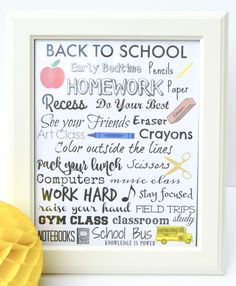 BACK TO SCHOOL
Early Bedtime Pencils
HOMEWORK Paper
Recess Do Your Best
See your Friends Eraser
Art Class Crayons
Color outside the lines
pack your lunch Scissors
Computers music class
WORK HARD Stay focused
raise your hand FIELD TRIPS
GYM CLASS classroom study
NOTEBOOKS School Bus
KNOWLEDGE IS POWER